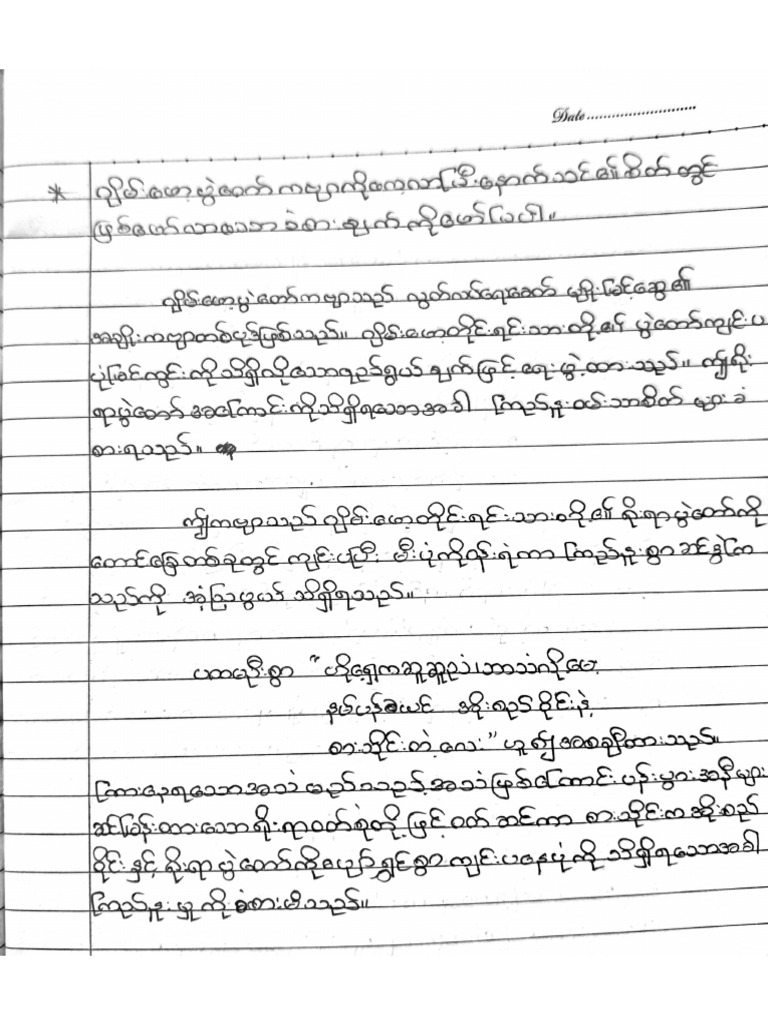 Date
* ဂျိမ်းဖော့ပွဲတော် ကဗျာကိုလေ့လာပြီးနောက် သင်၏စိတ်တွင်
ဖြစ်ပေါ်လာသော ခံစားချက်ကိုဖော်ပြပါ။
ဂျိမ်းဖော့ပွဲတော်ကဗျာသည် လွတ်လပ်ရေးခေတ် မျိုးမြင့်ဆွေ၏
အချိုးကဗျာတစ်ပုဒ်ဖြစ်သည်။ ဂျိမ်းဖော့တိုင်းရင်းသားတို့၏ ပွဲတော်ကျင်းပ
ပုံမြင်ကွင်းကိုသိရှိလိုသောရည်ရွယ်ချက်ဖြင့် ရေးဖွဲ့ထားသည်။ ဤရိုး
ရာပွဲတော် အကြောင်းကိုသိရှိရသောအခါ ကြည်နူးဝမ်းသာစိတ် များခံ
စားရသည်။
ဤကဗျာသည် ဂျိမ်းဖော့တိုင်းရင်းသားတို့၏ ရိုးရာပွဲတော်ကို
တောင်ခြေတစ်ခုတွင် ကျင်းပပြီး မီးပုံကိုဝန်းရံကာ ကြည်နူးစွာဆင်နွှဲကြ
သည်ကို အံ့ဩဖွယ် သိရှိရသည်။
ပထမဦးစွာ "ဟိုရှေ့ကဆူဆူညံ၊ ဘာသံလို့မေ့
နယ်ပန် အိုးစည်ဝိုင်းနဲ့
စားသိုင်းတဲ့လေး" ဟူ၍ အစချီထားသည်။
ကြားနေရသောအသံ မည်သည့်အသံဖြစ်ကြောင်း ပန်းပွားအနီများ
ဆင်မြန်းထားသောရိုးရာဝတ်စုံတို့ဖြင့် ဝတ်ဆင်ကာ စားသိုင်းက အိုးစည်
ဝိုင်းနှင့် ရိုးရာပွဲတော်ကိုပျော်ရွှင်စွာကျင်းပနေပုံကို သိရှိရသောအခါ
ကြည်နူးမှုကိုခံစားမိသည်။